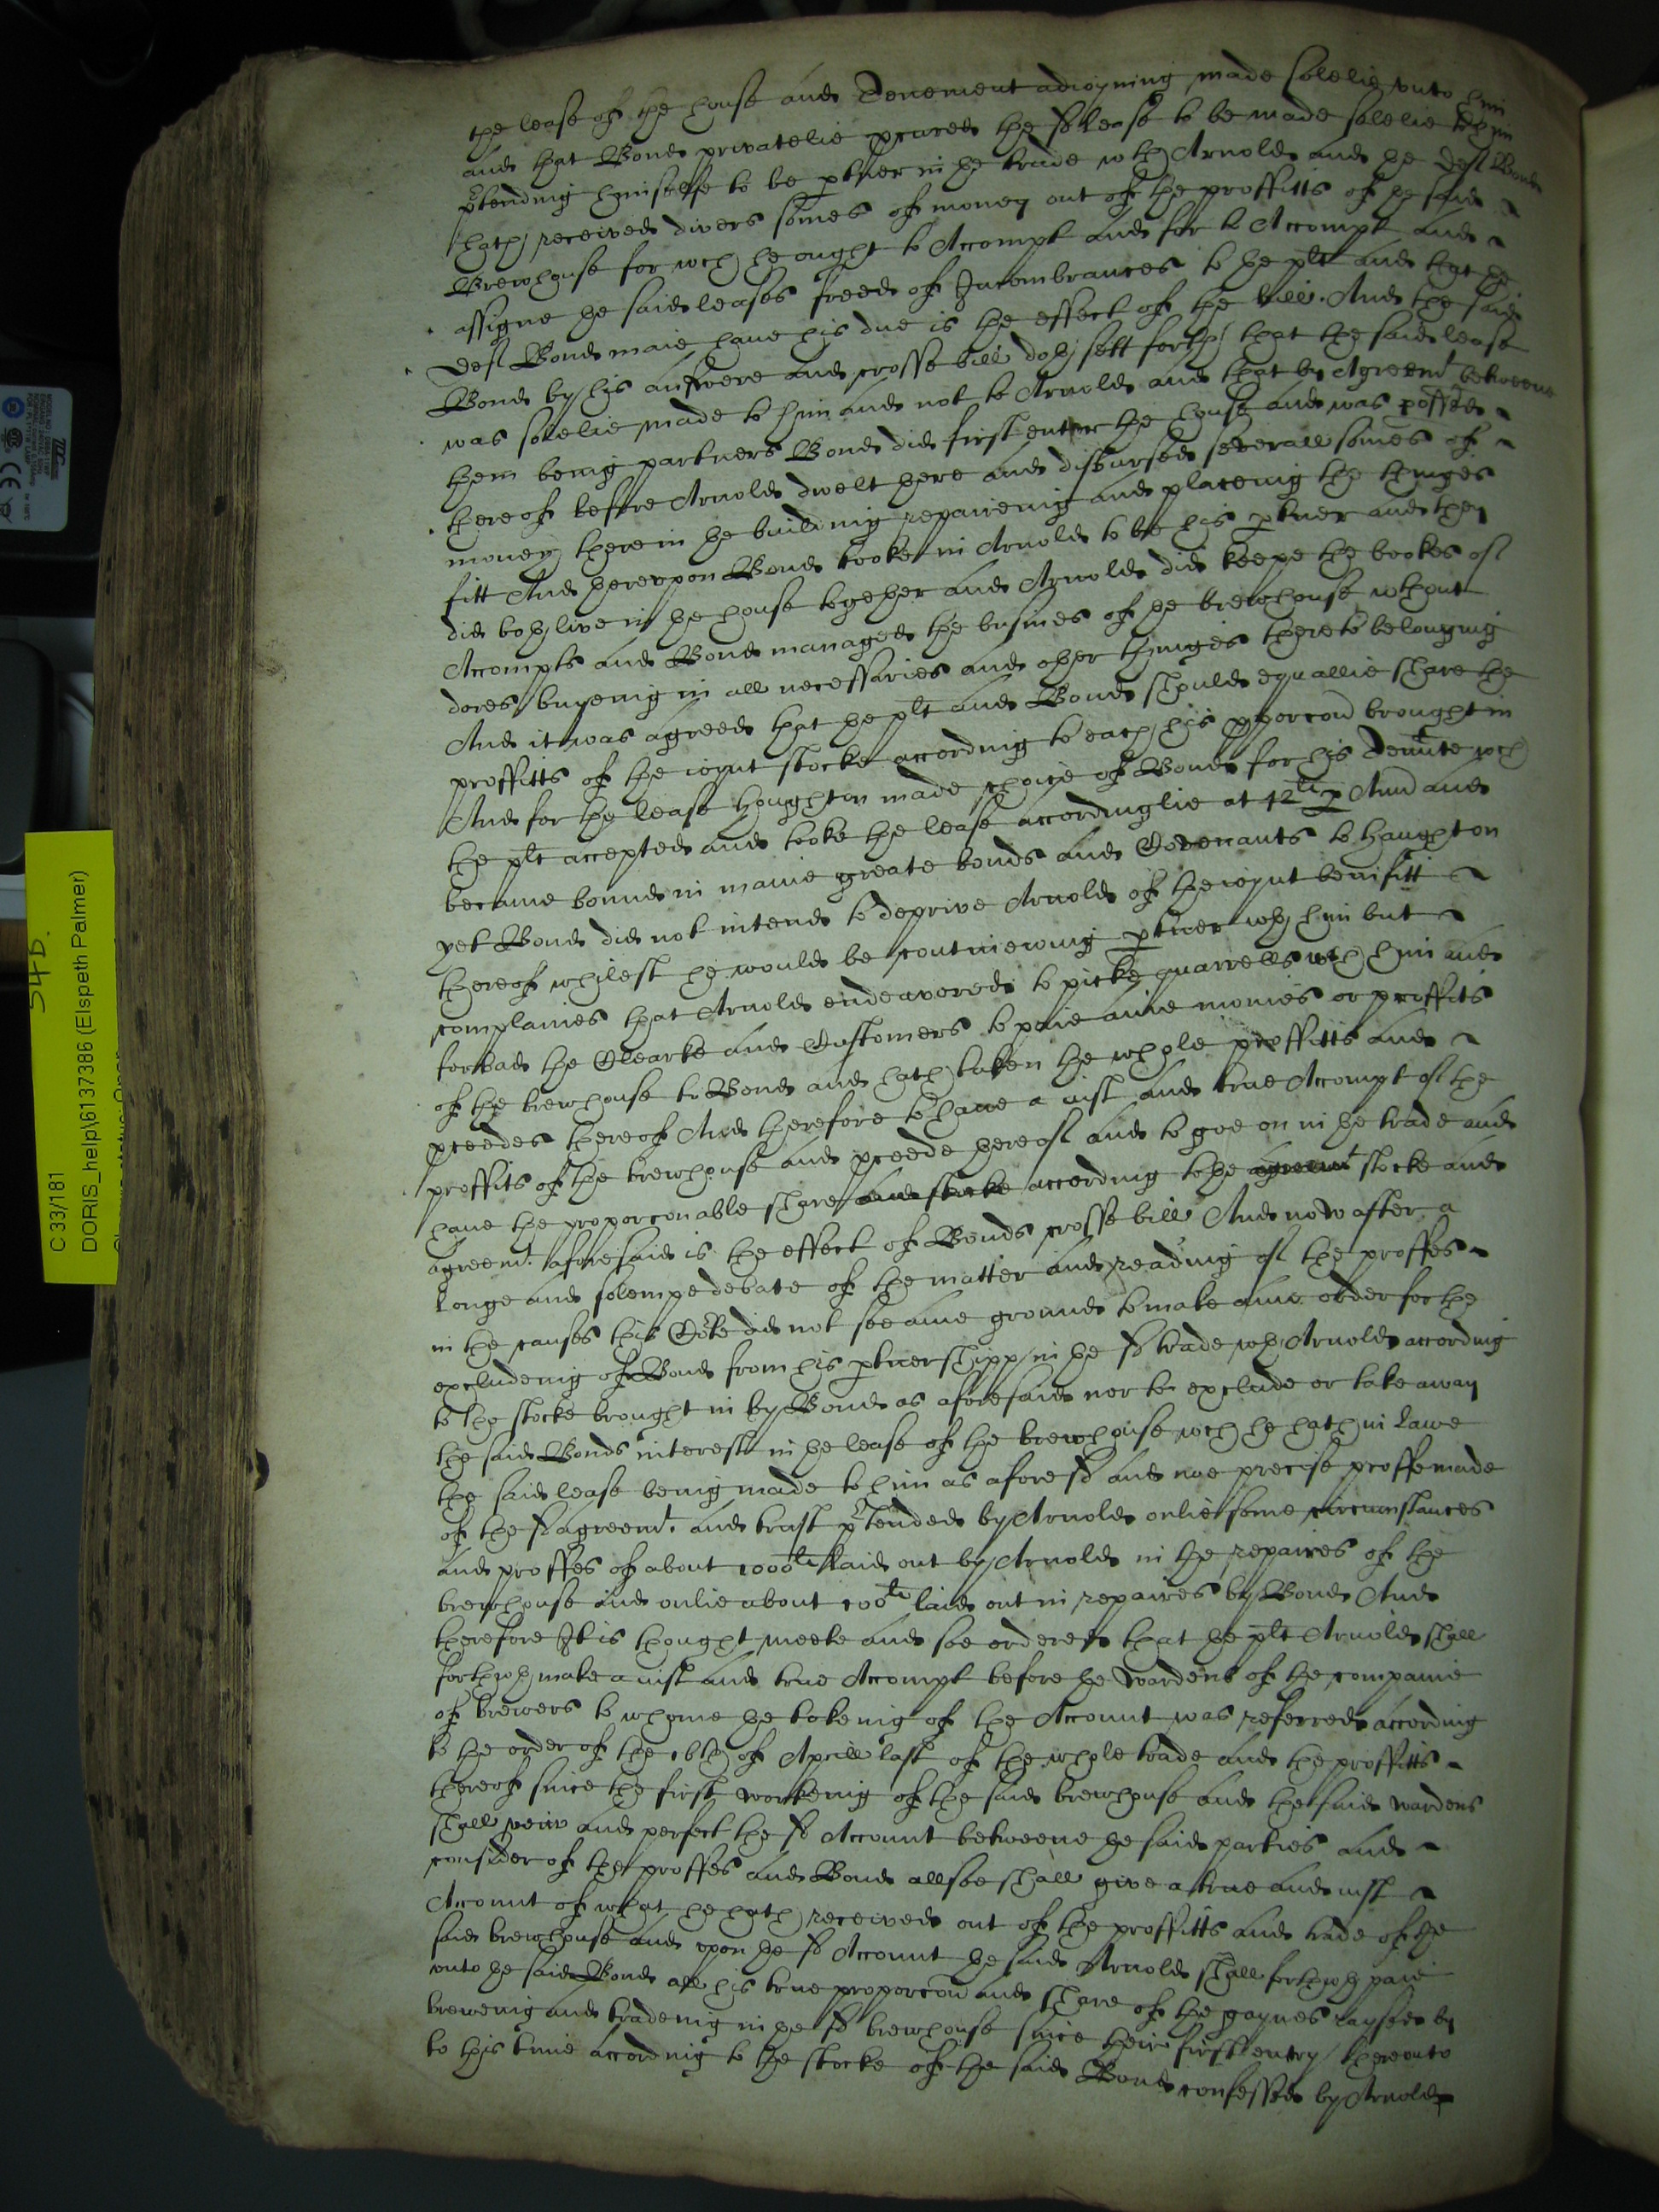 the lease of the house and Tenement adioyning made solelie unto him
and that Bond privatelie procured the sd lease to be made solelie to him
p̄tending himselfe to be p̱tner in the trade wth Arnold and the deft Bond
hath received divers somes of money out of the proffitts of the said
Brewhouse for wch he ought to Accompt and for to Accompt and
assigne the said leases freed of Incombrances to the plt and that the
deft Bond maie have his due is the effect of the bill. And the said
Bond by his answere and crosse bill doth sett forth that the said lease
was solelie made to him and not to Arnold and that by Agreemt betweene
them being partners Bond did first enter the house and was possed
thereof before Arnold dwelt there and disbursed severall somes of
money therein the building repaireing and placeing the thinges
fitt And thereupon Bond tooke in Arnold to be his p̱tner and they
did both live in the house together and Arnold did keepe the bookes of
Accompts and Bond managed the busines of the brewhouse wthout
dores buyeing in all necessaries and other thinges thereto belonging
And it was agreed that the plt and Bond should equallie share the
proffitts of the ioynt stocke according to each his p̱porcon brought in
And for the lease Houghton made choice of Bond for his Tennte wch
the plt accepted and tooke the lease accordinglie at 42li p̱ Ann̄ and
became bound in manie greate bonds and Covenants to Haughton
yet Bond did not intend to deprive Arnold of the ioynt benifitt
thereof whilest he would be continewing p̱tner wth him but
complaines that Arnold endeavored to picke quarrells wth him and
forbad the Clearke and Customers to paie anie monies or proffits
of the brewhouse to Bond and hath taken the whole proffitts and
p̱ceedes thereof And therefore to have a iust and true Accompt of the
proffits of the brewhouse and p̱ceede thereof and to goe on in the trade and
have the proporconable share and stocke according to the agreemt stocke and
agreemt. aforesaid is the effect of Bonds crosse bill And now after a
longe and solempe debate of the matter and reading of the proffes
in the causes this Cōrte did not see anie ground to make anie order for the
excludeing of Bond from his p̱tnershipp in the sd trade wth Arnold according
to the stocke brought in by Bond as aforesaid nor to exclude or take away
the said Bonds interest in the lease of the brewhouse wch he hath in lawe
the said lease being made to him as aforesd and noe precise proffe made
of the sd agreemt. and trust p̄tended by Arnold onlie some circumstances
and proffes of about 1000li laid out by Arnold in the repaires of the
brewhouse and onlie about 100li laid out in repaires by Bond And
therefore It is thought meete and soe ordered that the plt Arnold shall
forthwth make a iust and true Accompt before the Wardens of the companie
of brewers to whome the takeing of the Account was referred according
to the order of the 16th of Aprill last of the whole trade and the proffitts
thereof since the first workeing of the said brewhouse and the said wardens
shall veiw and perfect the sd Account betweene the said parties and
consider of the proffes and Bond allsoe shall give a true and iust
Account of what he hath received out of the proffitts and trade of the
said brewhouse and upon the sd Account the said Arnold shall forthwth paie
unto the said Bond all his true proporcon and share of the gaynes raysed by
breweing and tradeing in the sd brewhouse since their first entry thereunto
to this time according to the stocke of the said Bond confessed by Arnold
54D.
C 33/181
DORIS_help\6137386 (Elspeth Palmer)